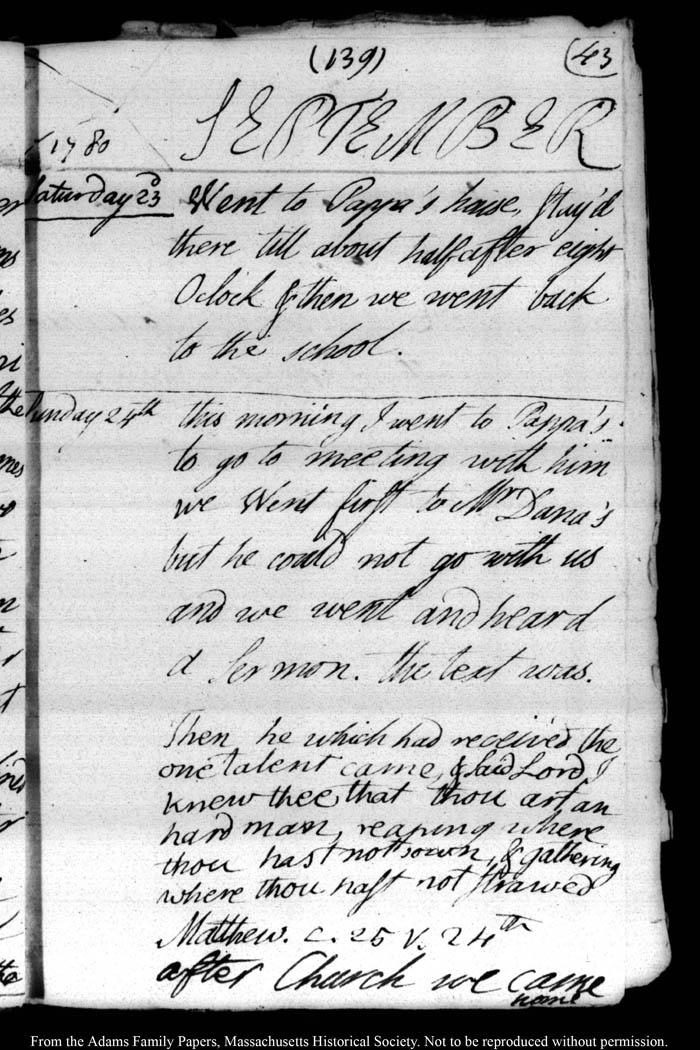 (139)
43
SEPTEMBER
1780
Saturday 23d
Went to Pappa's house, stay'd
there till about half after eight
Oclock & then we went back
to the school.
Sunday 24th
this morning I went to Pappa's
to go to meeting with him
we Went first to Mr Dana's
but he could not go with us
and we went and heard
a Sermon. the text was.
Then he which had received the
one talent came, & said Lord, I
knew thee, that thou art an
hard man, reaping where
thou hast not sown, & gathering
where thou hast not strawed
Matthew. C. 25 V. 24th
after Church we came
home
From the Adams Family Papers, Massachusetts Historical Society. Not to be reproduced without permission.